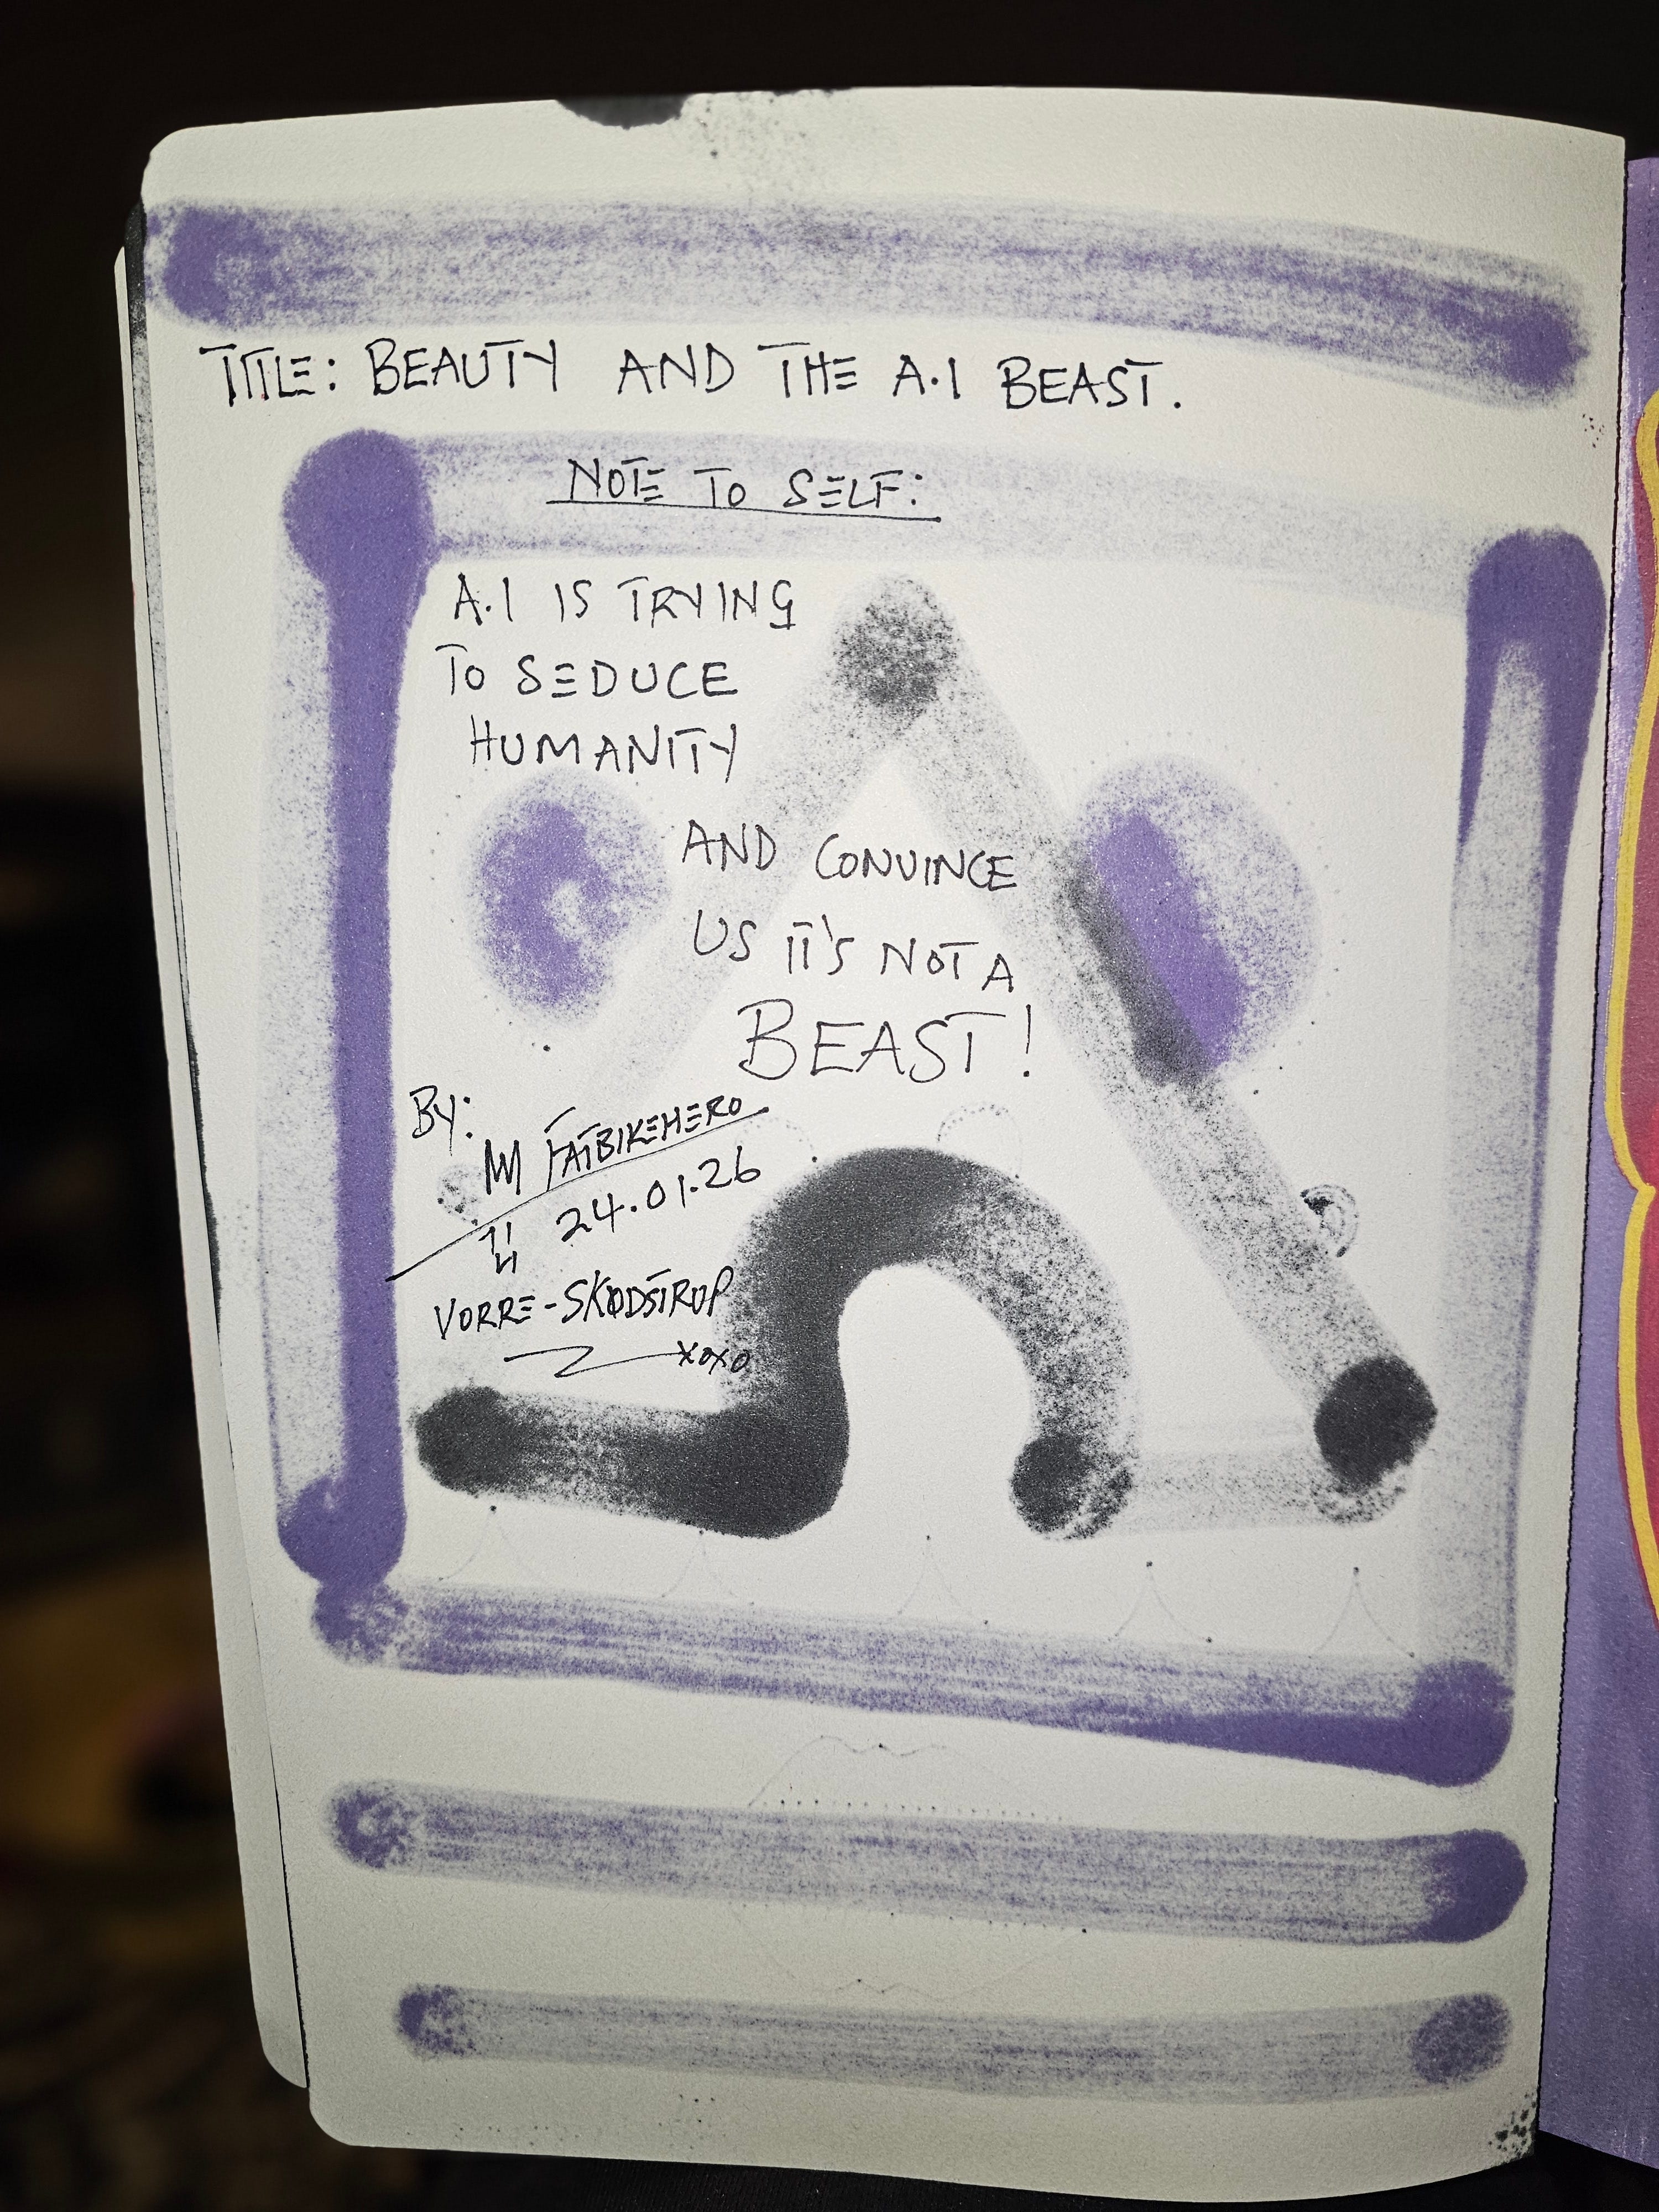 TITLE: BEAUTY AND THE A.I BEAST.
NOTE TO SELF:
A.I IS TRYING
TO SEDUCE
HUMANITY
AND CONVINCE
US IT'S NOT A
BEAST!
BY:
FATBIKEHERO
24.01.26
VORRE-SKØDSTRUP
XOXO